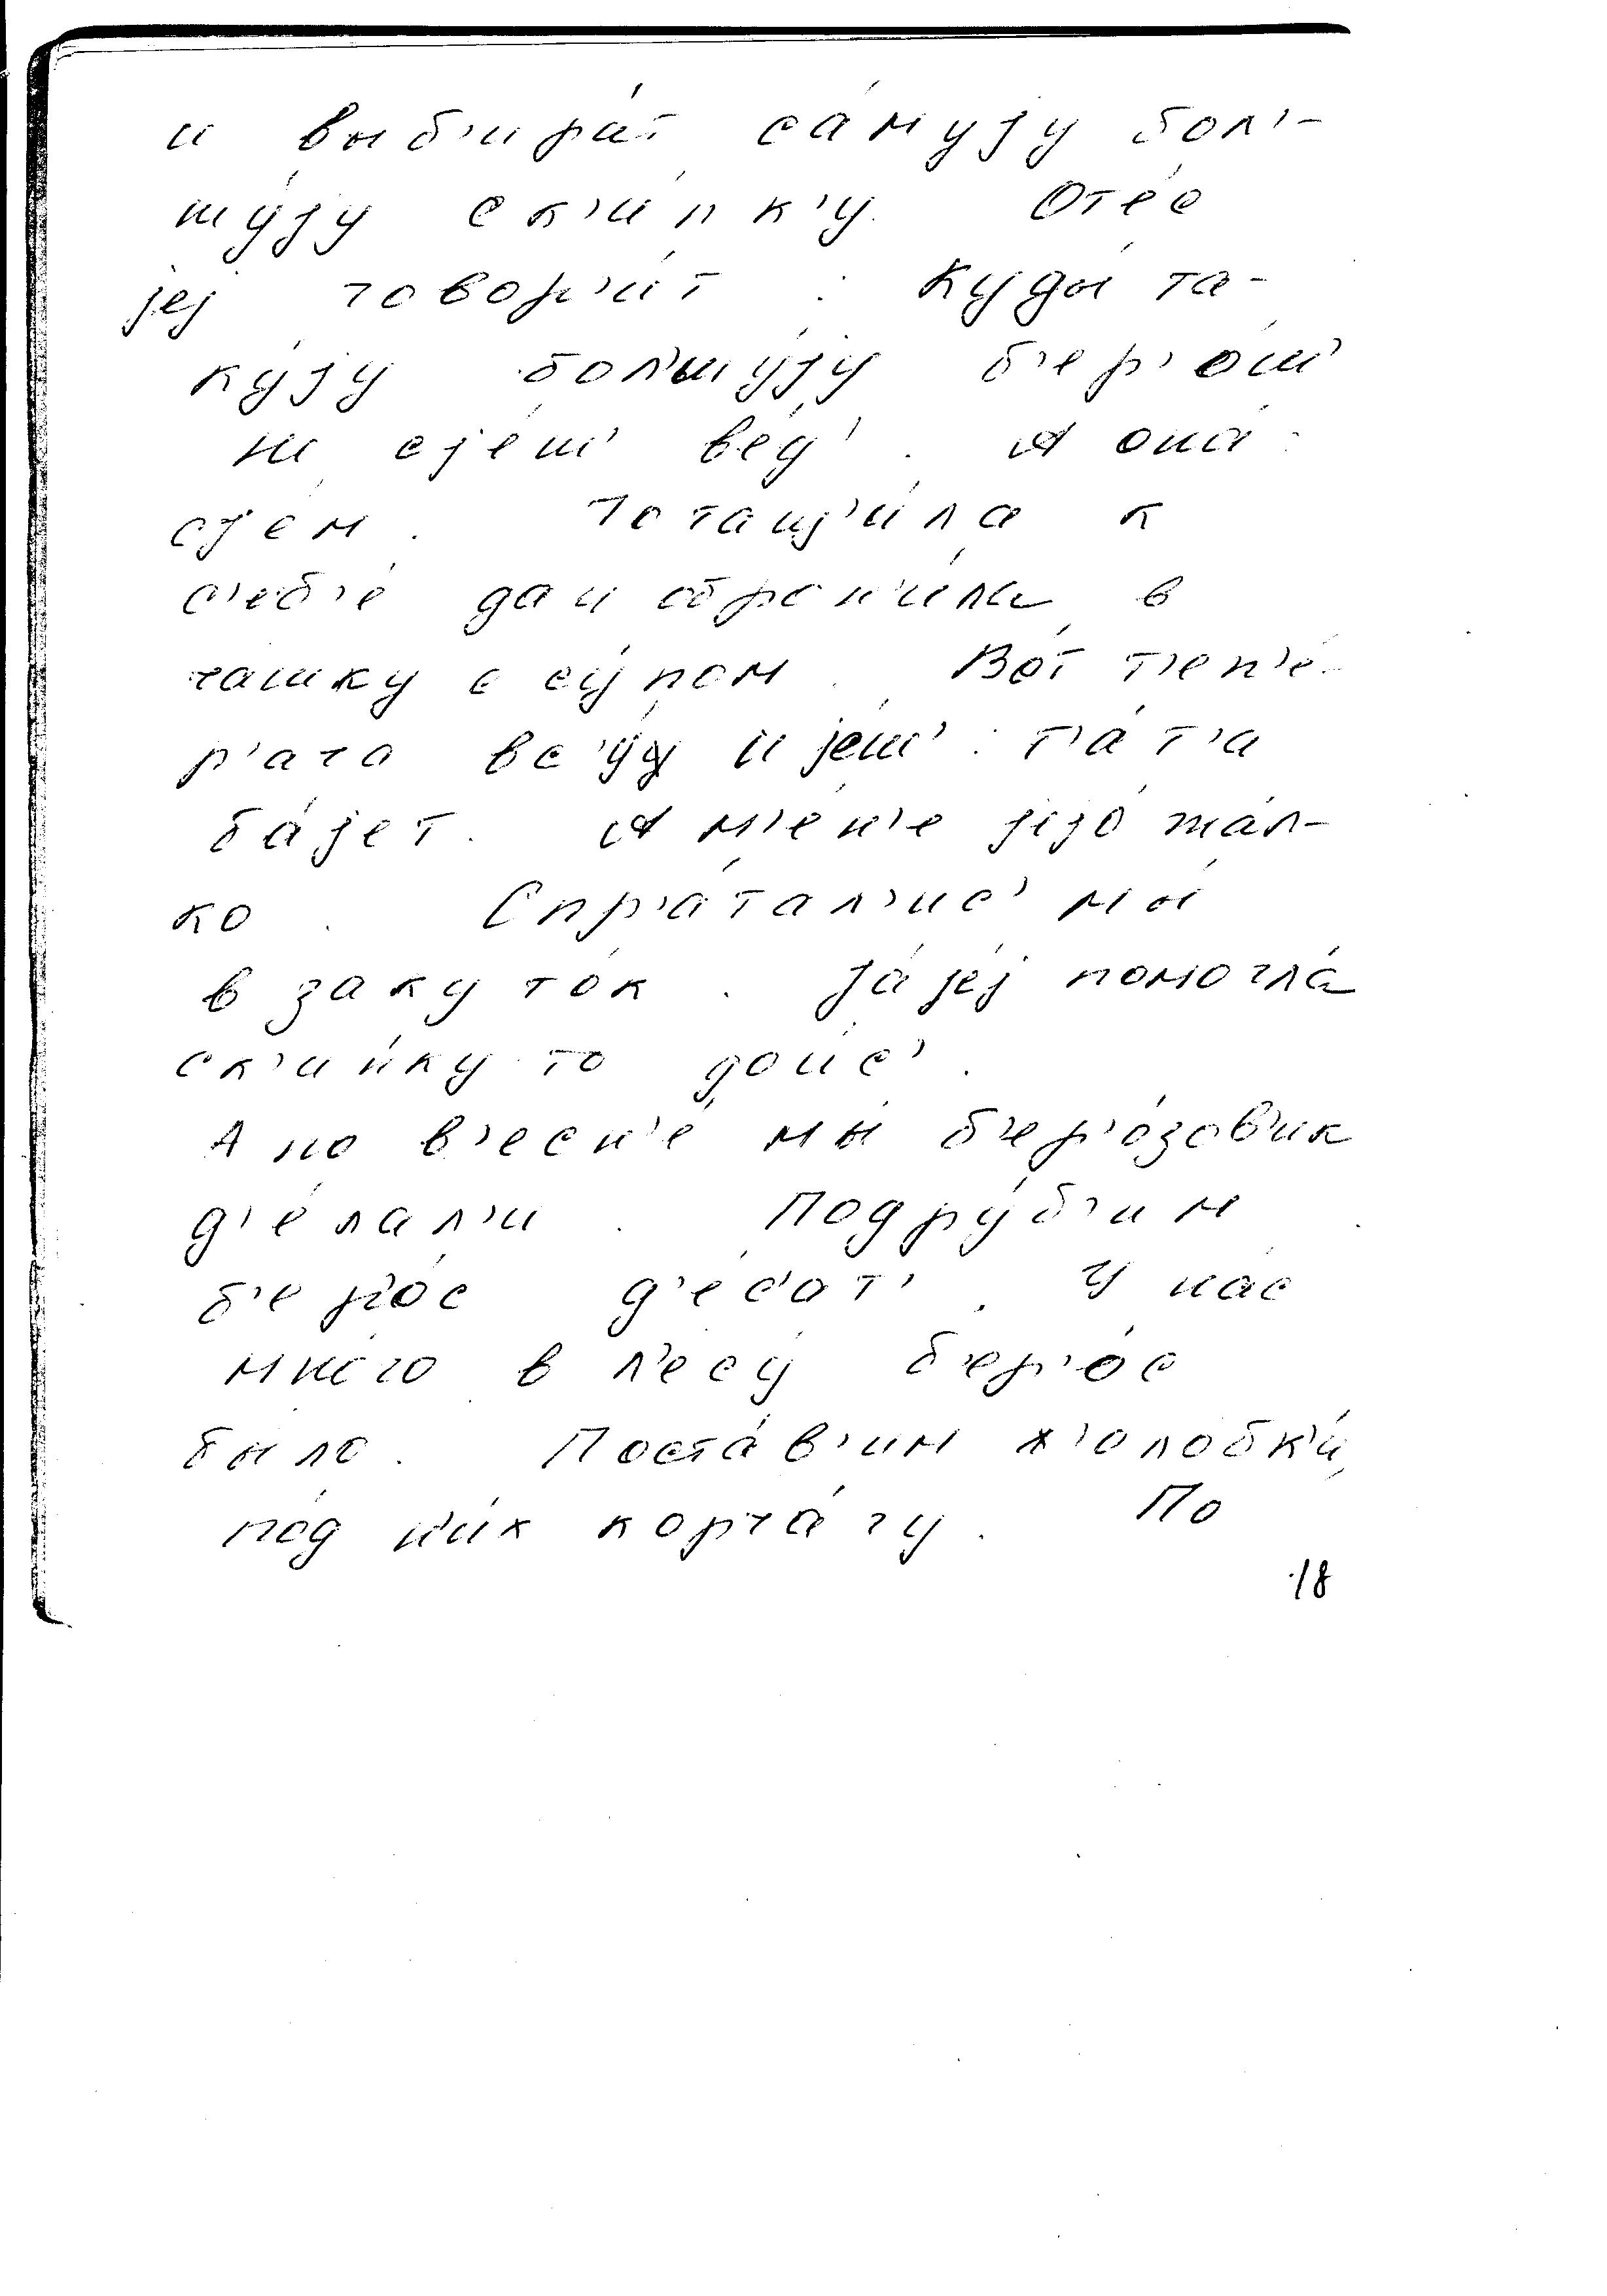 и выб'ира́т са́муjу бол'-
шу́jу ск'и́лк'у. Оте́с
jеj говор'и́т : Куды́ та-
ку́jу бол'шу́jу б'ер'о́ш'
н'и сjе́ш' вед'. А она́:
сjе́м. Потащ'и́ла к
с'еб'е́ да и оброн'и́ла в
чашку с су́пом. Во́т т'еп'е́-
р'ача вс'у́ и jе́ш': т'а́т'а
ба́jет. А м'е́н'е jиjо́ жа́л-
ко. Спр'а́тал'ис' мы́
в закуто́к. Jа́ jе́j помогла́
ск'и́лку-то дои́с'.
А по в'есн'е́ мы́ б'ер'о́зов'ик
д'е́лал'и. Подру́б'им
б'ер'о́с д'е́с'ат'. У на́с
мно́го в л'есу́ б'ер'о́с
бы́ло. Поста́в'им ж'олобк'и́,
по́д н'их корча́гу. По
18